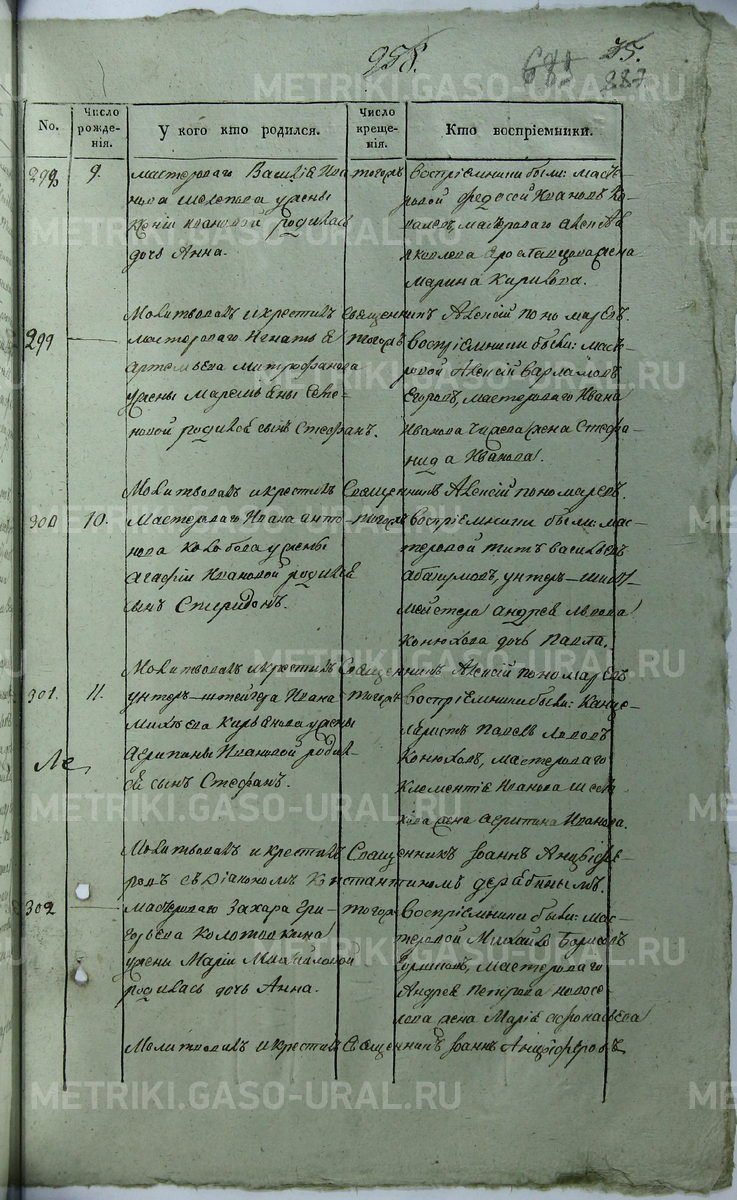 258.
35.
227
No.
Число рожде-нія.
У кого кто родился.
Число креще-нія.
Кто воспріемники.
298
9.
мастероваго Василіе Ива
нова у жены
Ксеніи Ивановой родилась
дочь Анна.
тогожъ
Воспріемники были: масте-
ровой Федосей Ивановъ Ко-
валевъ, мастероваго Алексѣя
Яковлева жена
Марина Карпова.
Молитвовалъ и крестилъ Священникъ Алексій Пономаревъ.
299
мастероваго Игнатье
Артемьева Митрофанова
у жены Маремьяны Семе-
новой родился сынъ Стефанъ.
тогожъ
Воспріемники были: масте-
ровой Алексій Варламовъ
Егоровъ, мастероваго Ивана
Иванова жена Стефа-
нида Иванова.
Молитвовалъ и крестилъ Священникъ Алексій Пономаревъ.
300
10.
Мастероваго Ивана Анто-
нова у жены
Агафіи Ивановой родился
сынъ Спиридонъ.
тогожъ
Воспріемники были: мас-
теровой Титъ Васильевъ
Абакумовъ, унтер-шихт-
мейстера Андрея Львова
Конюхова дочь Павла.
Молитвовалъ и крестилъ Священникъ Алексій Пономаревъ
301.
11.
унтер-штейгера Ивана
Михѣева у жены
Агрипины Ивановой родил-
ся сынъ Стефанъ.
тогожъ
Воспріемники были: Канце-
ляристъ Павелъ Львовъ
Конюховъ, мастероваго
Клементіе Иванова
жена Агрипина Иванова.
Молитвовалъ и крестилъ Священникъ Іоаннъ Анцыфе-
ровъ съ Діакономъ Константиномъ Дерябинымъ.
302
Мастероваго Захара Гри-
горьева Колоткина
у жены Маріи Михайловой
родилась дочь Анна.
тогожъ
Воспріемники были: мас-
теровой Михайло Борисовъ
мастероваго
Андрея Петрова Новосе-
лова жена Маріе Афонасьева
Молитвовалъ и крестилъ Священникъ Іоаннъ Анцыферовъ
METRIKI.GASO-URAL.RU